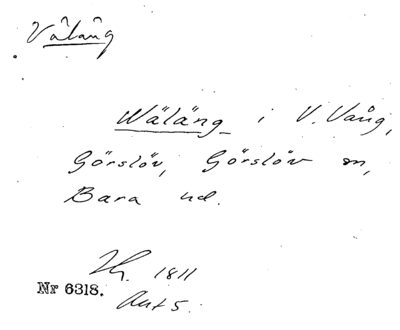 Välång
Wäläng i V. Vång,
Görslöv, Görslöv sn,
Bara hd.
1811
Nr 6318.
Akt 5.